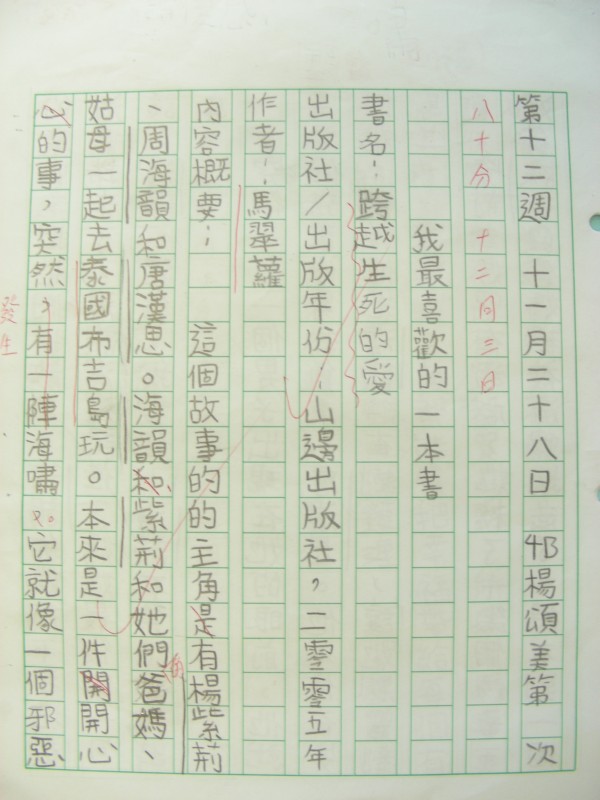 第十二週 十一月二十八日 4B楊頌美第 次
八十分 十二月三日
我最喜歡的一本書
書名：跨越生死的愛
出版社／出版年份：山邊出版社，二零零五年
作者：馬翠蘿
內容概要： 這個故事的的主角是有楊紫荊
、周海韻和唐漢思。海韻和紫荊和她們爸媽、
的
姑母一起去泰國布吉島玩。本來是一件開開心
心的事，突然，有一陣海嘯。它就像一個邪惡
發生